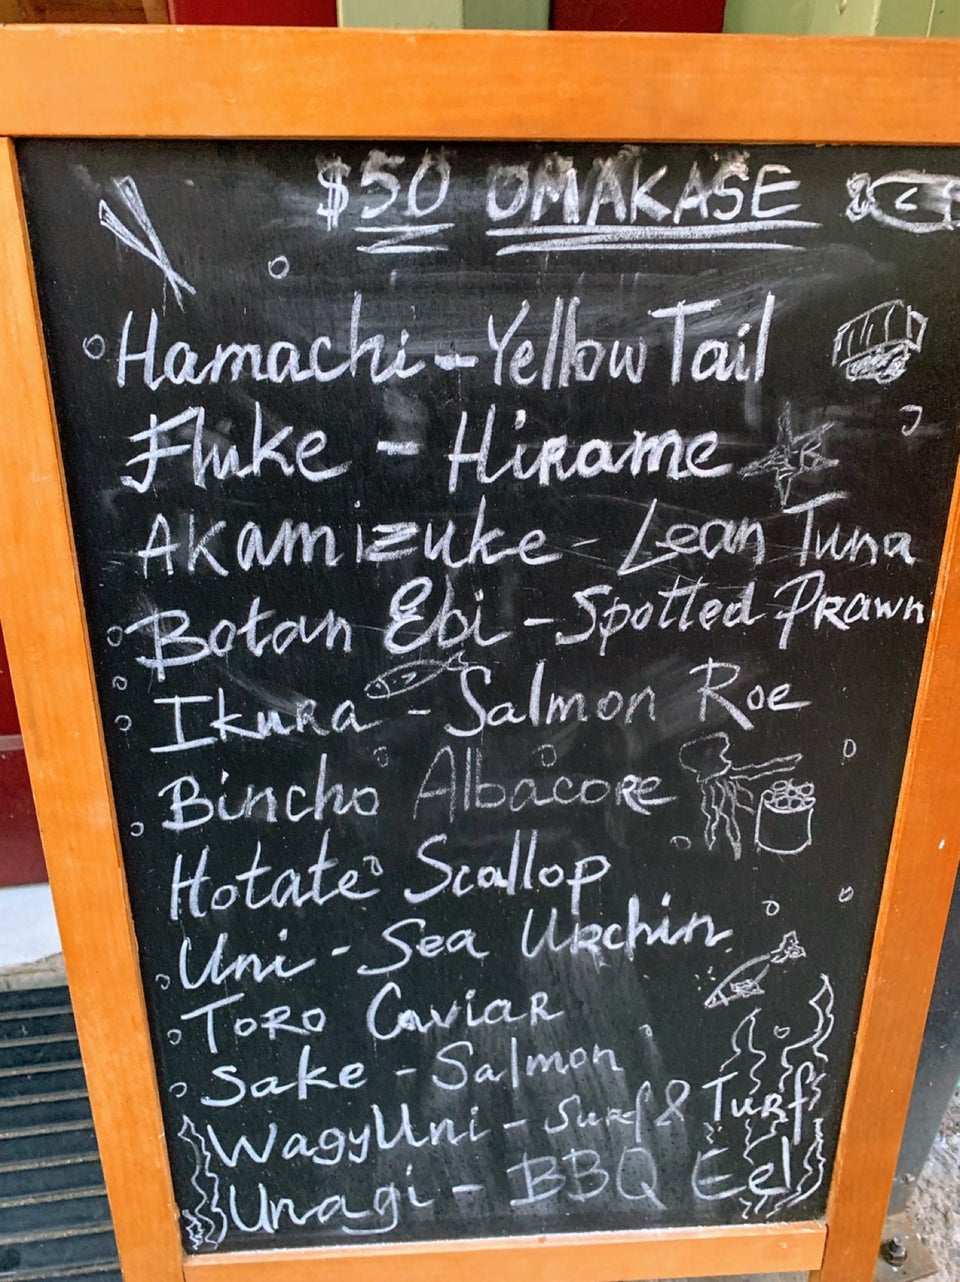 $50 OMAKASE
Hamachi - Yellow Tail
Fluke - Hirame
Akamizuke - Lean Tuna
Botan Ebi - Spotted Prawn
Ikura - Salmon Roe
Bincho Albacore
Hotate Scallop
Uni - Sea Urchin
Toro Caviar
Sake - Salmon
WagyUni - Surf & Turf
Unagi - BBQ Eel